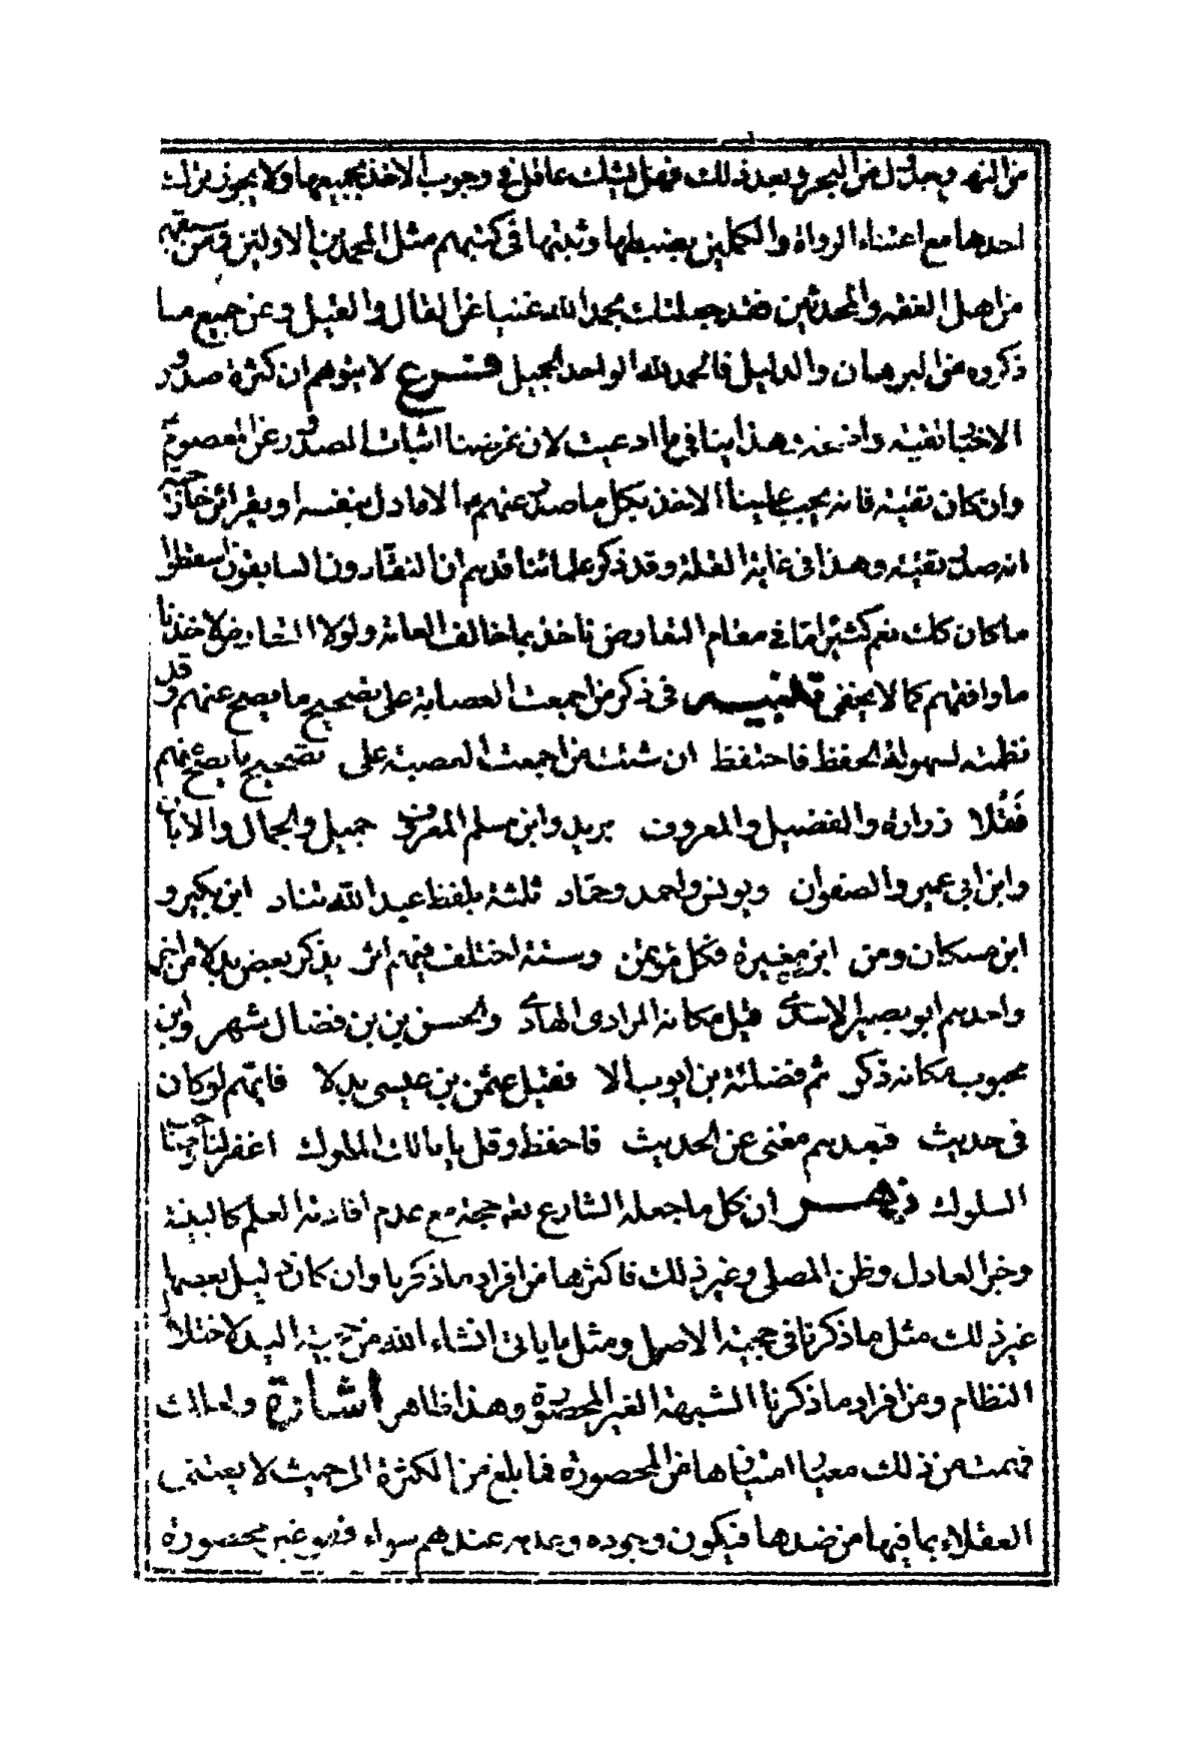 من النهر وبعدل من البحر وبعد ذلك فهل يشك عاقل في وجوب الاخذ بجميعها ولا يجوز ترك
احدها مع اعتناء الرواة والكملين بضبطها وثبتها في كتبهم مثل المحمدين الاولين ومن سبقهم
من اهل الفقه والمحدثين فقد جعلتك بحمد الله غنيا عن القال والقيل وعن جميع ما
ذكروه من البرهان والدليل فالحمد لله الواحد الجميل فرع لا يتوهم ان كثرة صدور
الاخبار تقية هذا ينافي ما ادعيت لان غرضنا اثبات الصدور عن المعصوم
وان كان تقية فانه يجب علينا الاخذ بكل ما صدر عنهم الا ما دل بنفسه او بقرائن خارجية
انه صدر تقية وهذا في غاية القلة وقد ذكر علمائنا قدهم ان النقادون السابقون اسقطوا
ما كان كك نعم كثيرا ما في مقام التعارض ناخذ بما خالف العامة ولولا التعارض لاخذنا
ما وافقهم كما لا يخفى تنبيه في ذكر من اجمعت العصابة على تصحيح ما يصح عنهم وقد
نظمته لسهولة الحفظ فاحتفظ ان شئت من اجمعت العصبة على تصحيح ما يصح عنهم
فقلا زرارة والفضيل والمعروف بريد وابن مسلم المعروف جميل والجمال والابان
وابن ابي عمير والصفوان ويونس واحمد وحماد ثلثة بلفظ عبد الله تناد ابن بكير و
ابن مسكان ومن ابن مغيرة فكل مؤتمن وستة اختلف فيهم اثر يذكر بعض بدلا من اخر
واحدهم ابو بصير الاسدي قيل مكانه المرادى الهادي والحسن بن بن فضال شهر وابن
محبوب مكانه ذكر ثم فضالة بن ايوب الا فقيل عثمن بن عيسى بدلا فايهم لو كان
في حديث فبعدهم مغنى عن الحديث فاحفظ وقل يا مالك الملوك اغفر لنا
السلوك زهر ان كل ما جعله الشارع حجة مع عدم افادته العلم كالبينة
وخبر العادل وظن المصلي وغير ذلك فاكثرها من افراد ما ذكرنا وان كان دليل بعضها
غير ذلك مثل ما ذكرنا في حجية الاصل ومثل ما ياتى انشاء الله من حجية اليد لاختلال
النظام ومن افراد ما ذكرنا الشبهة الغير المحصورة وهذا ظاهر اشارة ولعلك
فهمت من ذلك معيار امتيازها من المحصورة فما بلغ من الكثرة الى حيث لا يعتنى
العقلاء بما فيها من ضدها فيكون وجوده وعدمه عندهم سواء فهو غير محصورة